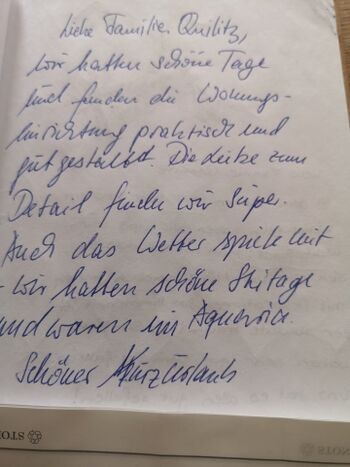 Liebe Familie Quilitz,
wir hatten schöne Tage
und fanden die Wohnungs-
einrichtung praktisch und
gut gestaltet. Die Liebe zum
Detail finden wir super.
Auch das Wetter spielte mit
- wir hatten schöne Skitage
und waren im Aqueria.
Schöner Kurzurlaub
STO